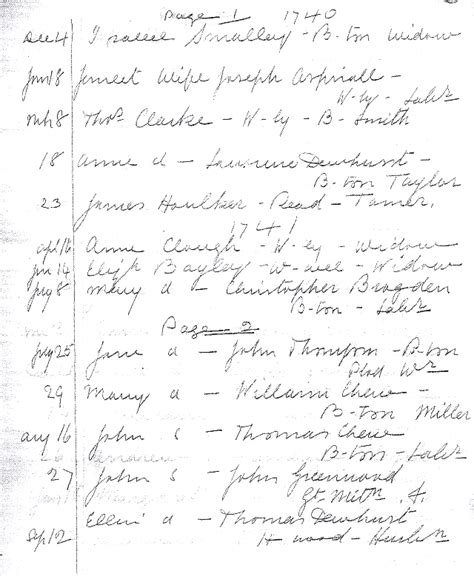 Page 1 1740
Dec 4 Isabel Smalley - B-ton Widow
Jan 18 Jennet Wife Joseph Aspinall -
W-ly - Labr
mch 8 Thos Clarke - W-ly - B-Smith
18 Anne d - Lawrence Dewhurst -
B-ton Taylor
23 James Houlker - Read - Tanner.
1741
apl 16 Anne Clough - W-ley - Widow
Jun 14 Bayley - W-well - Widow
July 8 Mary d - Christopher Brogden
B-ton - Labr
Page 2
July 25 Jane d - John Thompson - B-ton
Wr
29 Mary d - William Chew -
B-ton Miller
aug 16 John s - Thomas Chew
B-ton - Labr
27 John s - John Greenwood
Gt. Mitn
Ellin d - Thomas Dewhurst
Sep 12 H-wood - Husbn